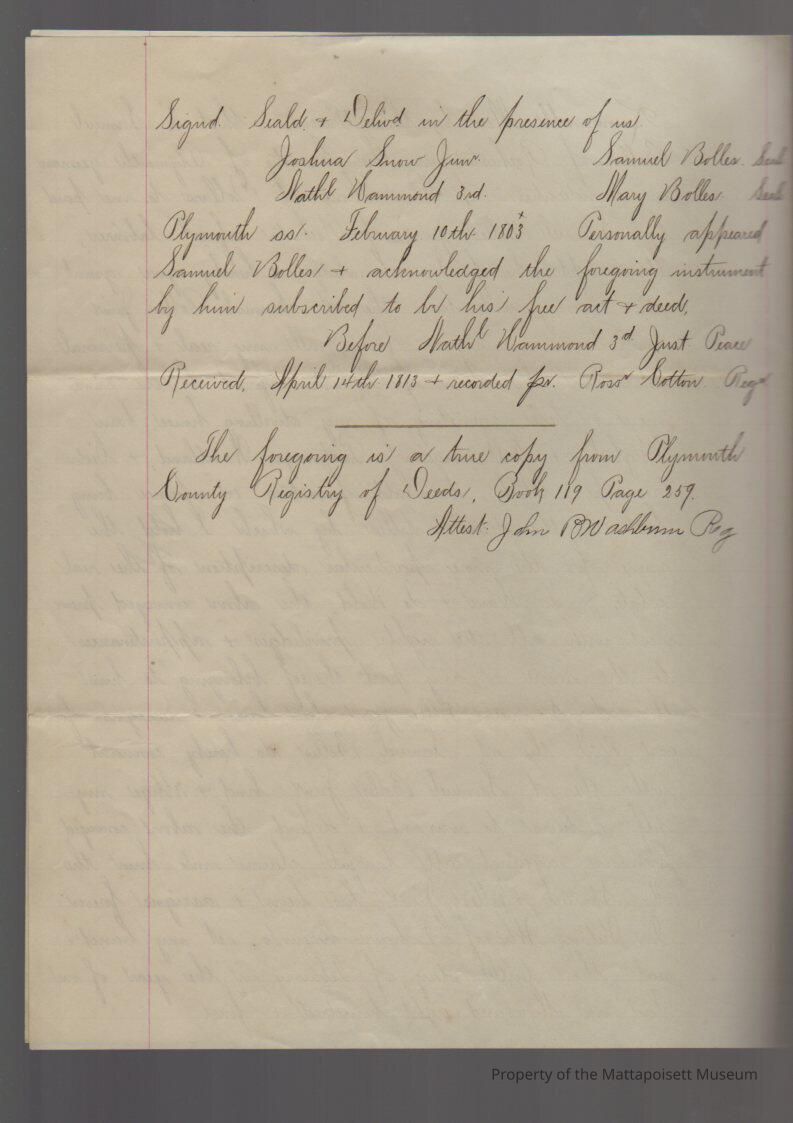 Signd. Seald. + Delivd in the presence of us.
Joshua Snow Junr. Samuel Bolles. Seal
Nathl Hammond 3rd. Mary Bolles. Seal
Plymouth ss. February 10th 1803 Personally appeared
Samuel Bolles + acknowledged the foregoing instrument
by him subscribed to be his free act + deed,
Before Nathl Hammond 3d Just Peace
Received, April 14th 1813 + recorded pr. Rossr Cotton. Regr
The foregoing is a true copy from Plymouth
County Registry of Deeds, Book 119 Page 259.
Attest: John B Washburn Reg
Property of the Mattapoisett Museum